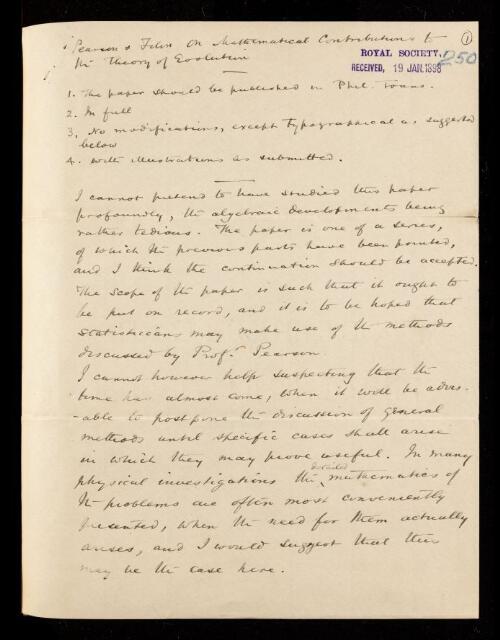 Pearson & Filon On Mathematical Contributions to
the Theory of Evolution
(1)
ROYAL SOCIETY.
RECEIVED, 19 JAN.1898
250
1. The paper should be published in Phil. Trans.
2. In full
3. No modifications, except typographical as suggested
below
4. With illustrations as submitted.
I cannot pretend to have studied this paper
profoundly, the algebraic developments being
rather tedious. The paper is one of a series,
of which the previous parts have been printed,
and I think the continuation should be accepted.
The scope of the paper is such that it ought to
be put on record, and it is to be hoped that
statisticians may make use of the methods
discussed by Prof.r Pearson
I cannot however help suspecting that the
time has almost come, when it will be advis-
-able to postpone the discussion of general
methods until specific cases shall arise
in which they may prove useful. In many
physical investigations the detailed mathematics of
the problems are often most conveniently
presented, when the need for them actually
arises, and I would suggest that this
may be the case here.